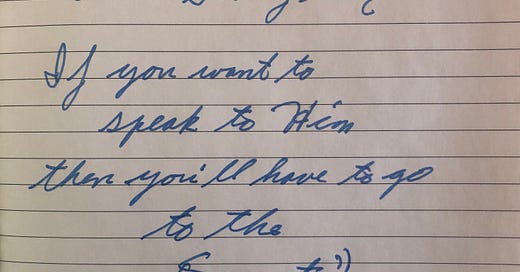 If you want to
speak to Him
then you'll have to go
to the